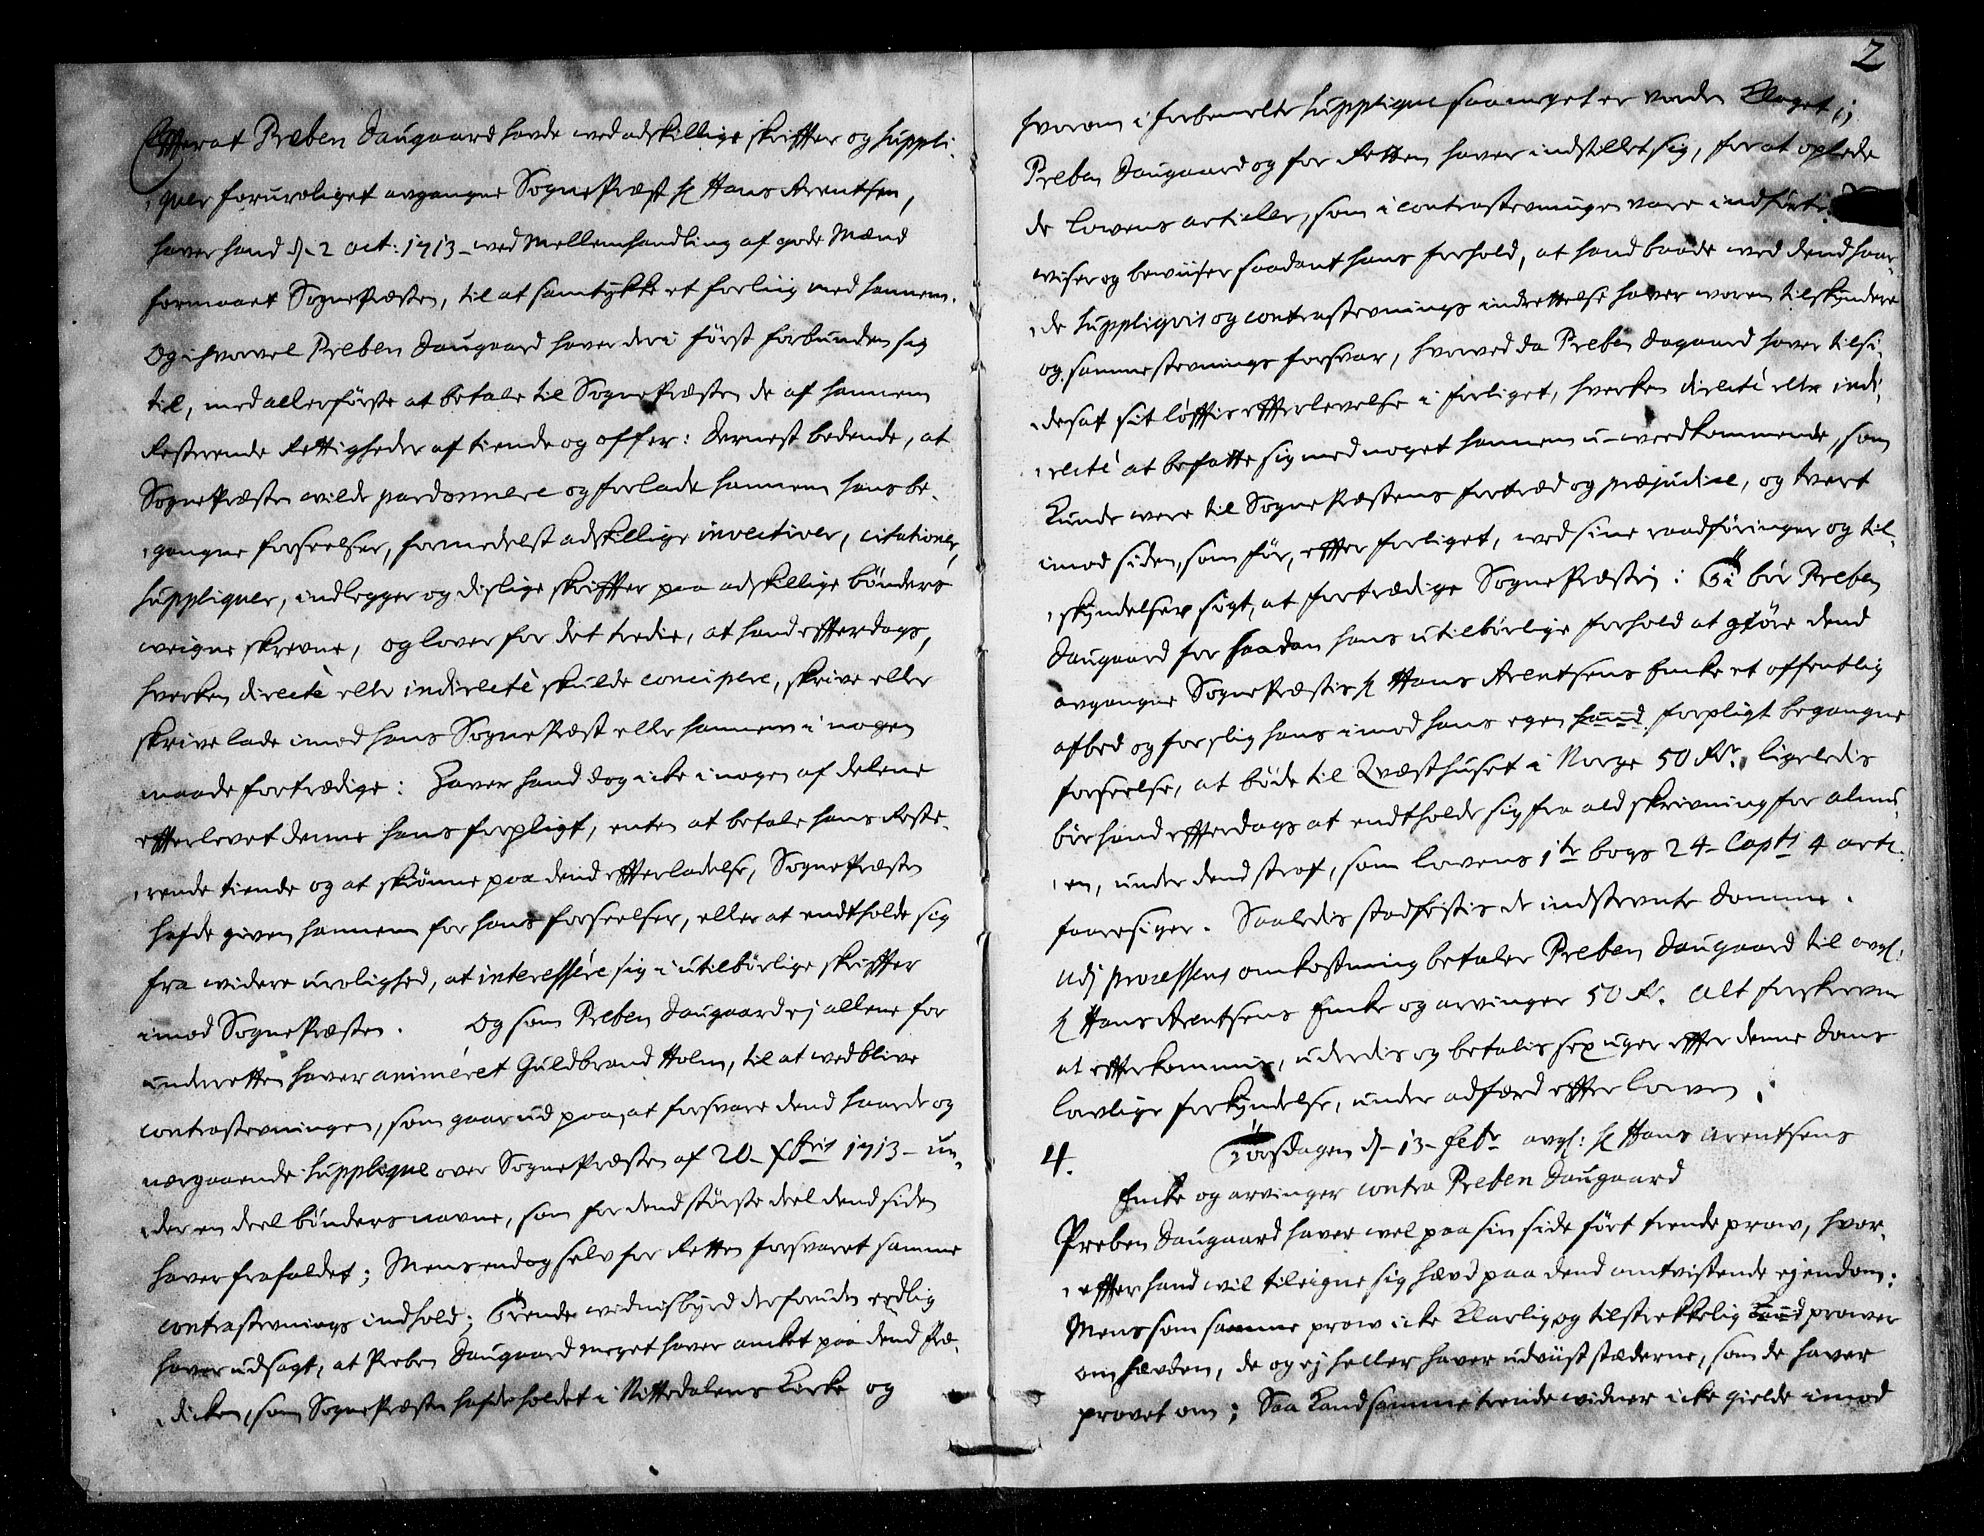 Effterat Preben Daugaard hafde ved adskillige skriffter og suppli-
quer foruroliget afgangne SognePræst H Hans Arentsen,
haver hand d. 2 oct: 1713 ved Mellemhandling af gode Mænd
formaaet SognePræsten, til at samtykke et forliig med hannem.
Og ihvorvel Preben Daugaard haver deri først forbunden sig
til, med allerførste at betale til SognePræsten de af hannem
Resterende Rettigheder af tiende og offer: dernest bedende, at
SognePræsten wilde pardonnere og forlade hannem hans be-
gangne forseelser, formedelst adskillige invectiver, citationer,
suppliquer, indlegger og dislige skriffter paa adskillige bønders
weigne skrevne, og lover for det tredie, at hand effterdags,
hverken directè eller indirectè skulde concipere, skrive eller
skrive lade imod hans SognePræst eller hannem i nogen
maade fortrædige: Haver hand dog icke i nogen af delene
effterlevet denne hans forpligt, enten at betale hans Reste-
rende tiende og at skiønne paa dend effterladelse, SognePræsten
hafde given hannem for hans forseelser, eller at endtholde sig
fra widere urolighed, at interessére sig i utilbørlige skriffter
imod SognePræsten. Og som Preben Daugaard ej allene for
underretten haver animéret Guldbrand Holm, til at wedblive
contrastevningen, som gaar ud paa, at forsvare dend haarde og
nærgaaende supplique over SognePræsten af 20 Xbris 1713 un-
der en deel bønders navne, som for dend største deel dend siden
haver frafaldet; Mens endog selv for Retten forsvaret samme
contrastevnings indhold; Trende widnisbyrd desforuden eedlig
haver udsagt, at Preben Daugaard meget haver anket paa dend Præ-
dicken, som SognePræsten hafde holdet i Nittedalens Kirke og
2
hvorom i forbemelte supplique saa meget er vorden Klaget;
Preben Daugaard og for Retten haver indstillet sig, for at oplede
de Lowens articler, som i contrastevningen vare indførte:
wiser og bewiiser saadant hans forhold, at hand baade wed dend haar-
de suppliqvis og contrastevnings indrettelse haver waren tilskyndere
og samme stevnings forsvar, hvorved da Preben Dagaard haver tilsi-
desat sit løffte effterlevelse i forliget, hverken directé eller indi-
recté at befatte sig med noget hannem u-wedkommende, som
Kunde were til SognePræstens fortræd og præjudice, og tvert
imod siden, som før, effter forliget, med sine raadføringer og til-
skyndelser søgt, at fortrædige SognePræsten: Ti bør Preben
Daugaard for saadan hans utilbørlige forhold at giøre dend
avgangne SognePræstes H Hans Arentsens Encke et offentlig
afbed og for slig hans imod hans egen haand forpligt begangne
forseelse, at bøde til Qvæsthuset i Norge 50 Rdr. ligeledis
bør hand effterdags at endtholde sig fra ald skrivning for almu-
en, under dend straf, som Lowens 1te bogs 24 Capts 4 arti:
foaresiger. Saaledis stadfestis de indstevnte Domme.
Udj processens omkostning betaler Preben Daugaard til avg:
H Hans Arentsens Encke og arvinger 50 Rdr. Alt forskrevne
at effterkommis, uderdis og betalis sex uger effter denne Doms
lavlige forkyndelse, under adfærd effter Lowen.
4. Torsdagen d. 13 Febr avg: H Hans Arentsens
Encke og arvinger contra Preben Daugaard
Preben Daugaard haver wel paa sin side ført trende prow, hvor-
effter hand wil tileigne sig hævd paa dend omtvistende eiendom:
Mens som samme prow icke Klarlig og tilstrekkelig Kund prower
om hævden, de og ej heller haver udviist stæderne, som de haver
provet om; Saa Kand samme trende widner icke gielde imod